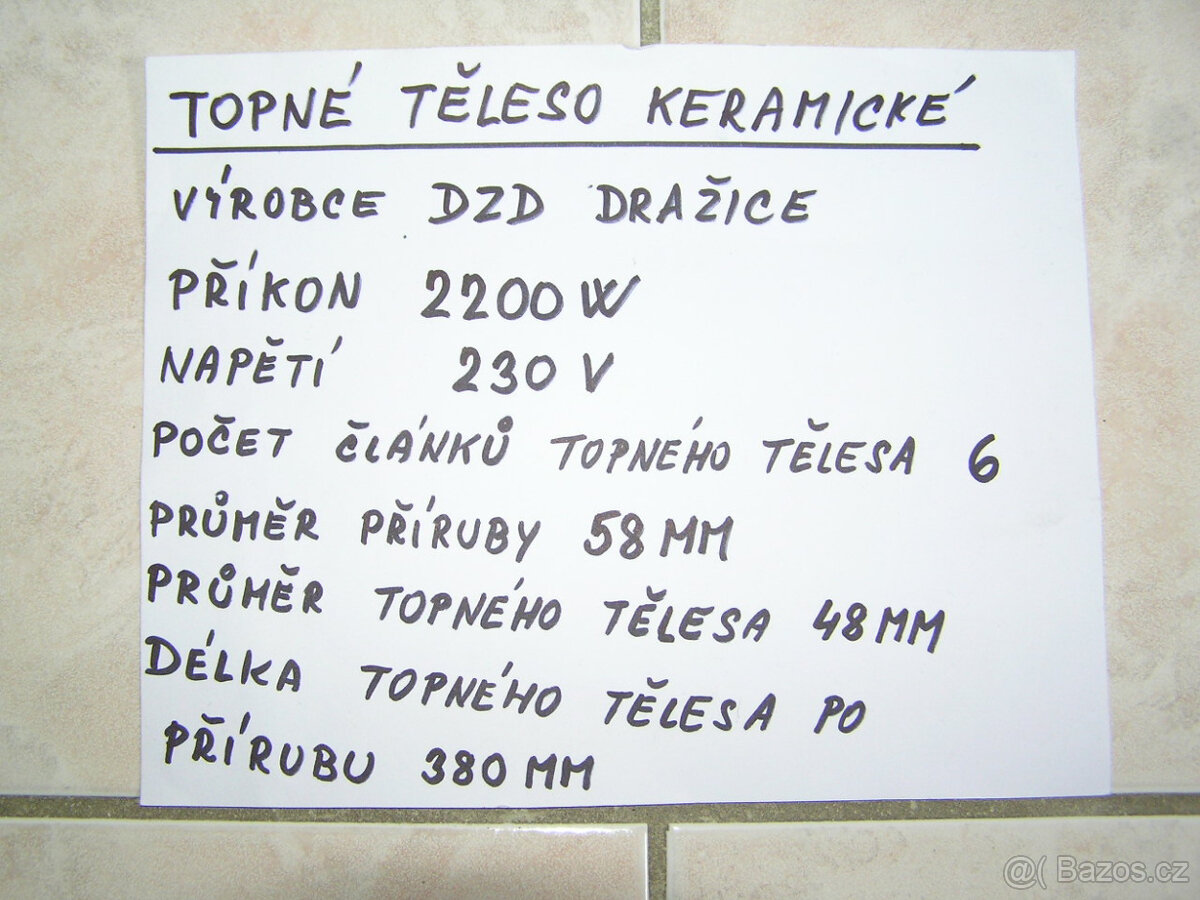 TOPNÉ TĚLESO KERAMICKÉ
VÝROBCE DZD DRAŽICE
PŘÍKON 2200W
NAPĚTÍ 230 V
POČET ČLÁNKŮ TOPNÉHO TĚLESA 6
PRŮMĚR PŘÍRUBY 58MM
PRŮMĚR TOPNÉHO TĚLESA 48MM
DÉLKA TOPNÉHO TĚLESA PO
PŘÍRUBU 380 MM
@( Bazos.cz